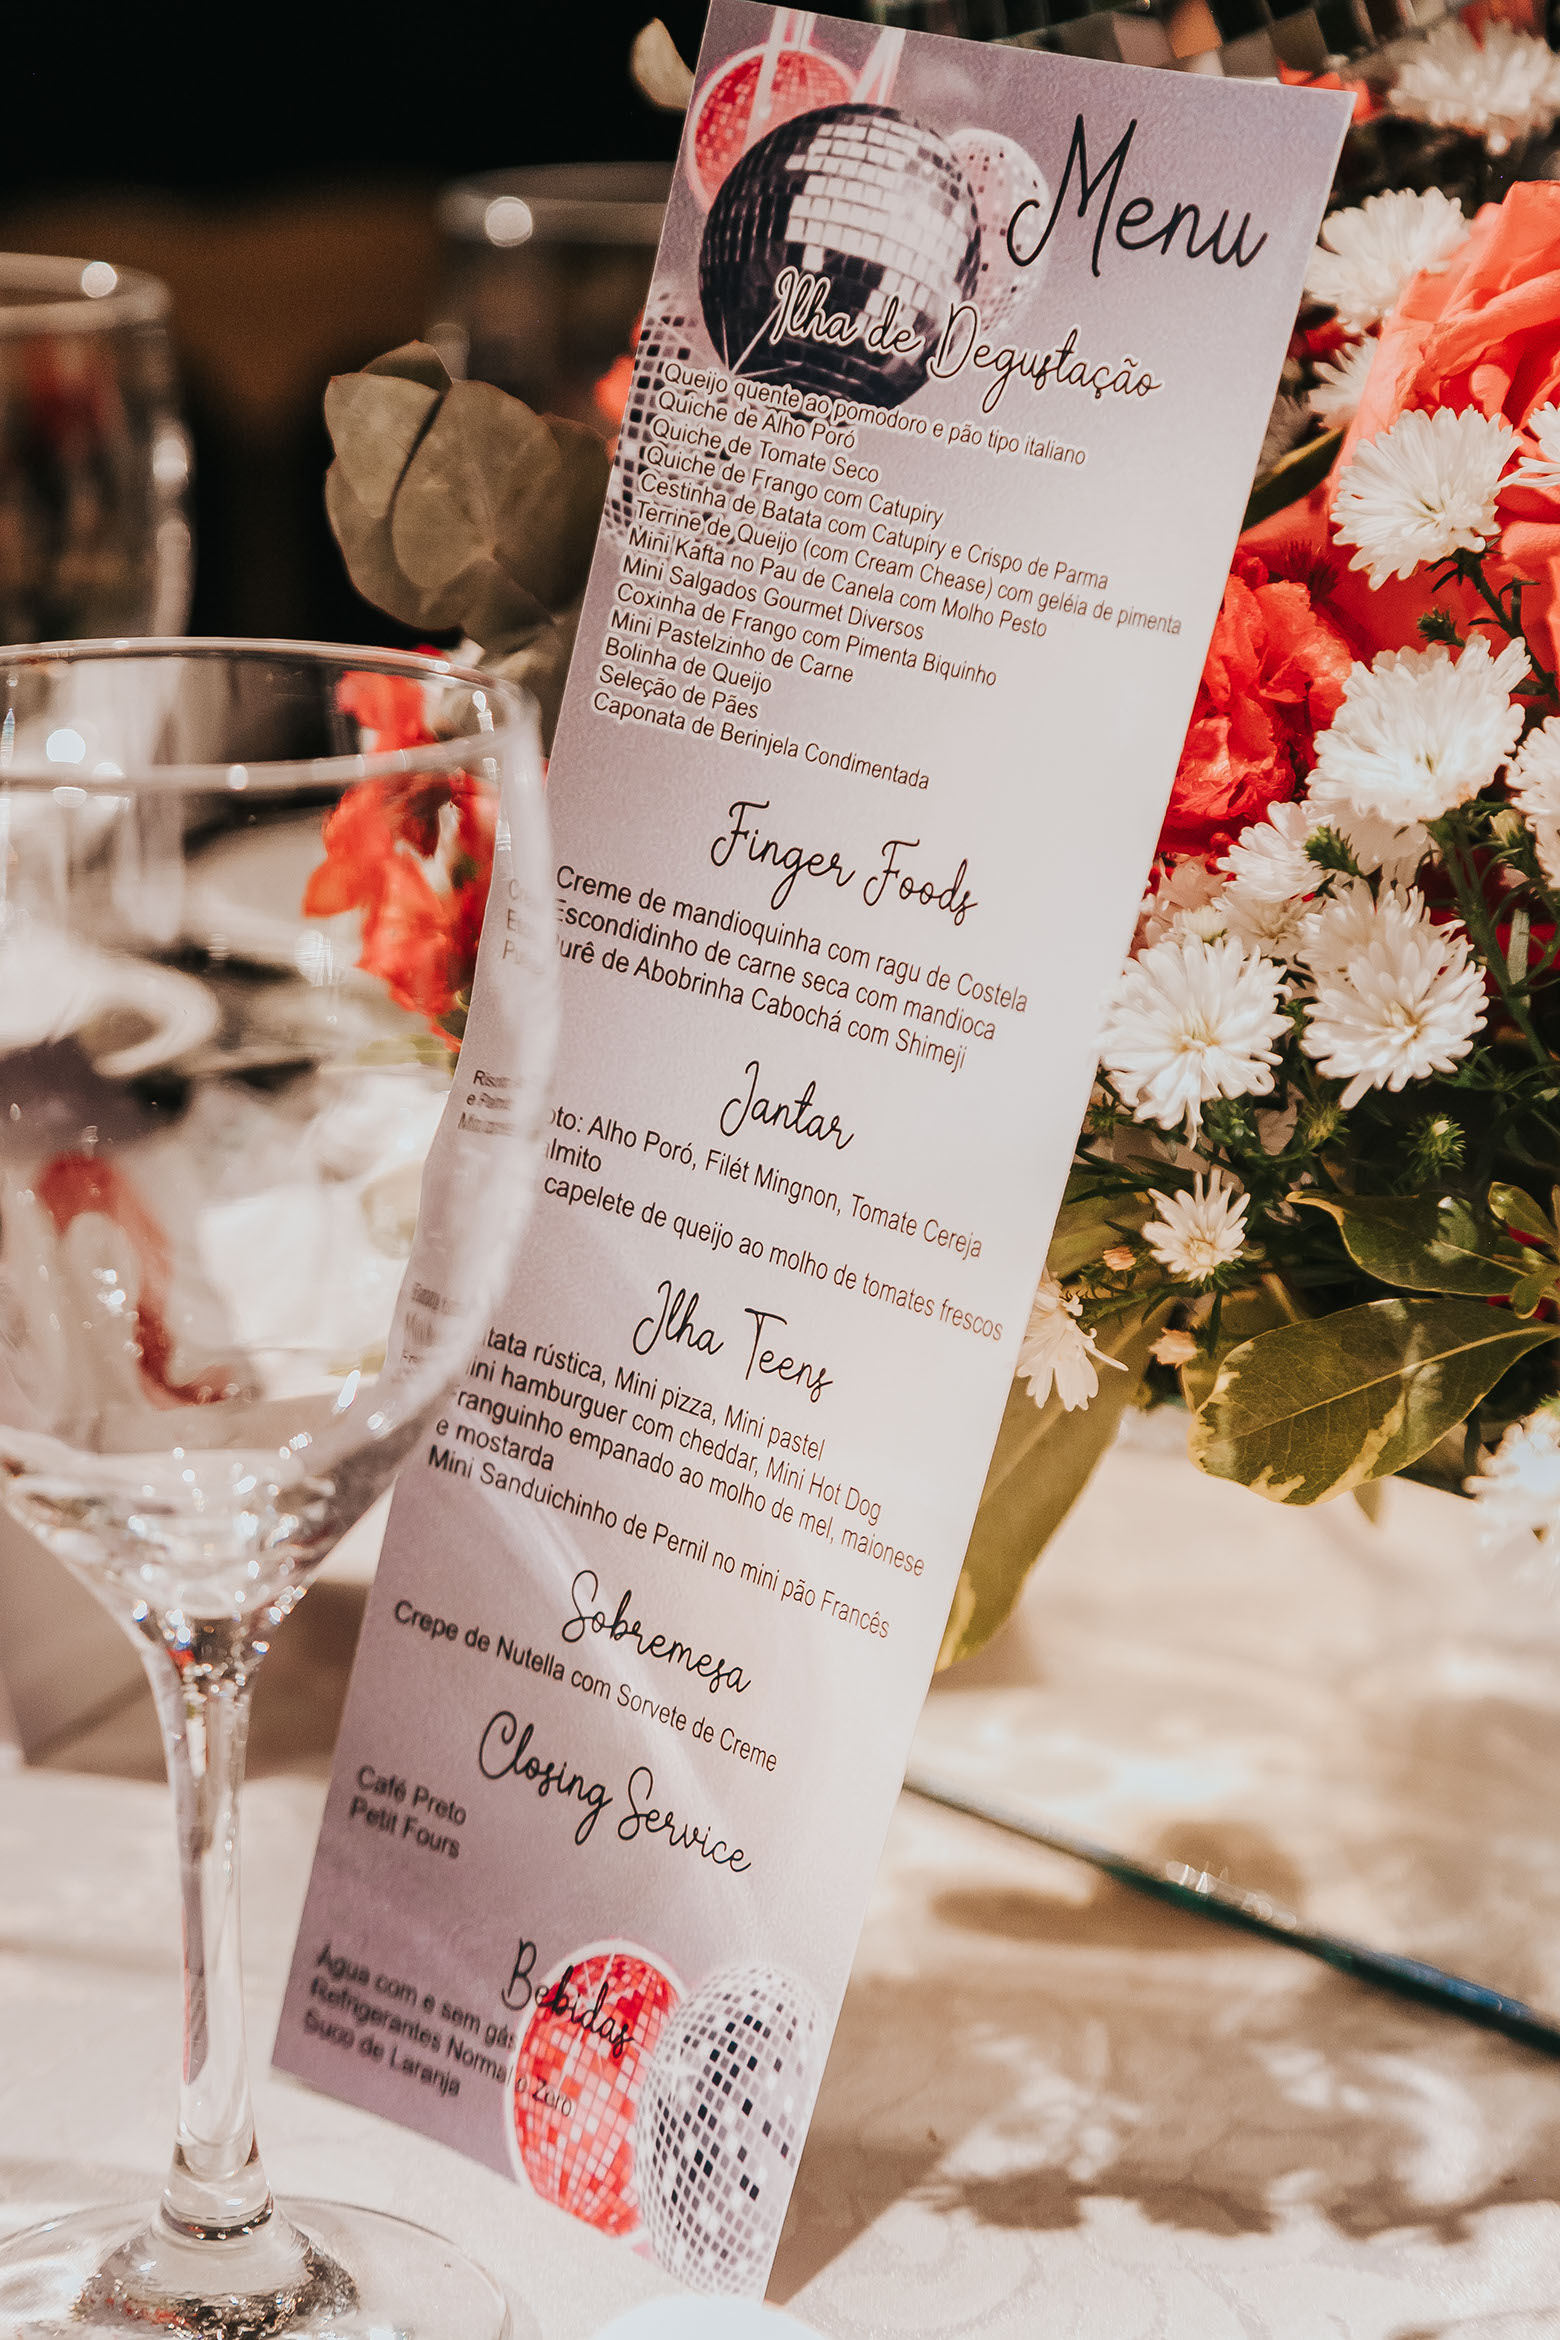 Menu
Ilha de Degustação
Queijo quente ao pomodoro e pão tipo italiano
Quiche de Alho Poró
Quiche de Tomate Seco
Quiche de Frango com Catupiry
Cestinha de Batata com Catupiry e Crispo de Parma
Terrine de Queijo (com Cream Chease) com geléia de pimenta
Mini Kafta no Pau de Canela com Molho Pesto
Mini Salgados Gourmet Diversos
Coxinha de Frango com Pimenta Biquinho
Mini Pastelzinho de Carne
Bolinha de Queijo
Seleção de Pães
Caponata de Berinjela Condimentada
Finger Foods
Creme de mandioquinha com ragu de Costela
Escondidinho de carne seca com mandioca
Purê de Abobrinha Cabochá com Shimeji
Jantar
Alho Poró, Filét Mingnon, Tomate Cereja
capelete de queijo ao molho de tomates frescos
Ilha Teens
rústica, Mini pizza, Mini pastel
Mini hamburguer com cheddar, Mini Hot Dog
Franguinho empanado ao molho de mel, maionese
e mostarda
Mini Sanduichinho de Pernil no mini pão Francês
Sobremesa
Crepe de Nutella com Sorvete de Creme
Closing Service
Café Preto
Petit Fours
Bebidas
Agua com e sem gás
Refrigerantes Normal Zero
Suco de Laranja